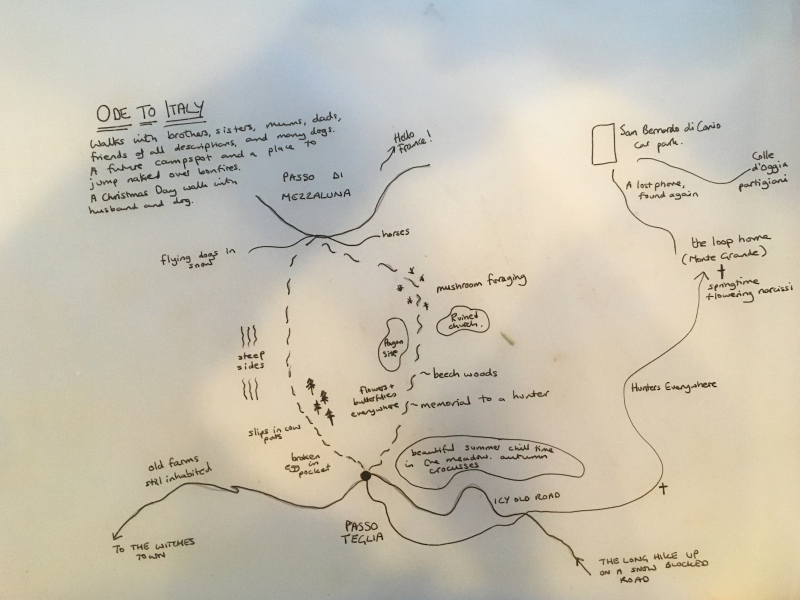 ODE TO ITALY
Walks with brothers, sisters, mums, dads,
friends of all descriptions, and many dogs.
A future campspot and a place to
jump naked over bonfires.
A Christmas Day walk with
husband and dog.
Hello
France!
PASSO DI
MEZZALUNA
flying dogs in
snow
horses
mushroom foraging
Ruined
church.
Pagan
site
steep
sides
beech woods
flowers +
butterflies
everywhere
memorial to a hunter
slips in cow
pats
broken
egg in
pocket
beautiful summer chill time
in the meadow. autumn
crocusses
old farms
still inhabited
TO THE WITCHES
TOWN
PASSO
TEGLIA
ICY OLD ROAD
THE LONG HIKE UP
ON A SNOW BLOCKED
ROAD
Hunters Everywhere
the loop home
(Monte Grande)
springtime
flowering narcissi
A lost phone,
found again
San Bernardo di Conio
Car park.
Colle
d'Oggia
partigiani